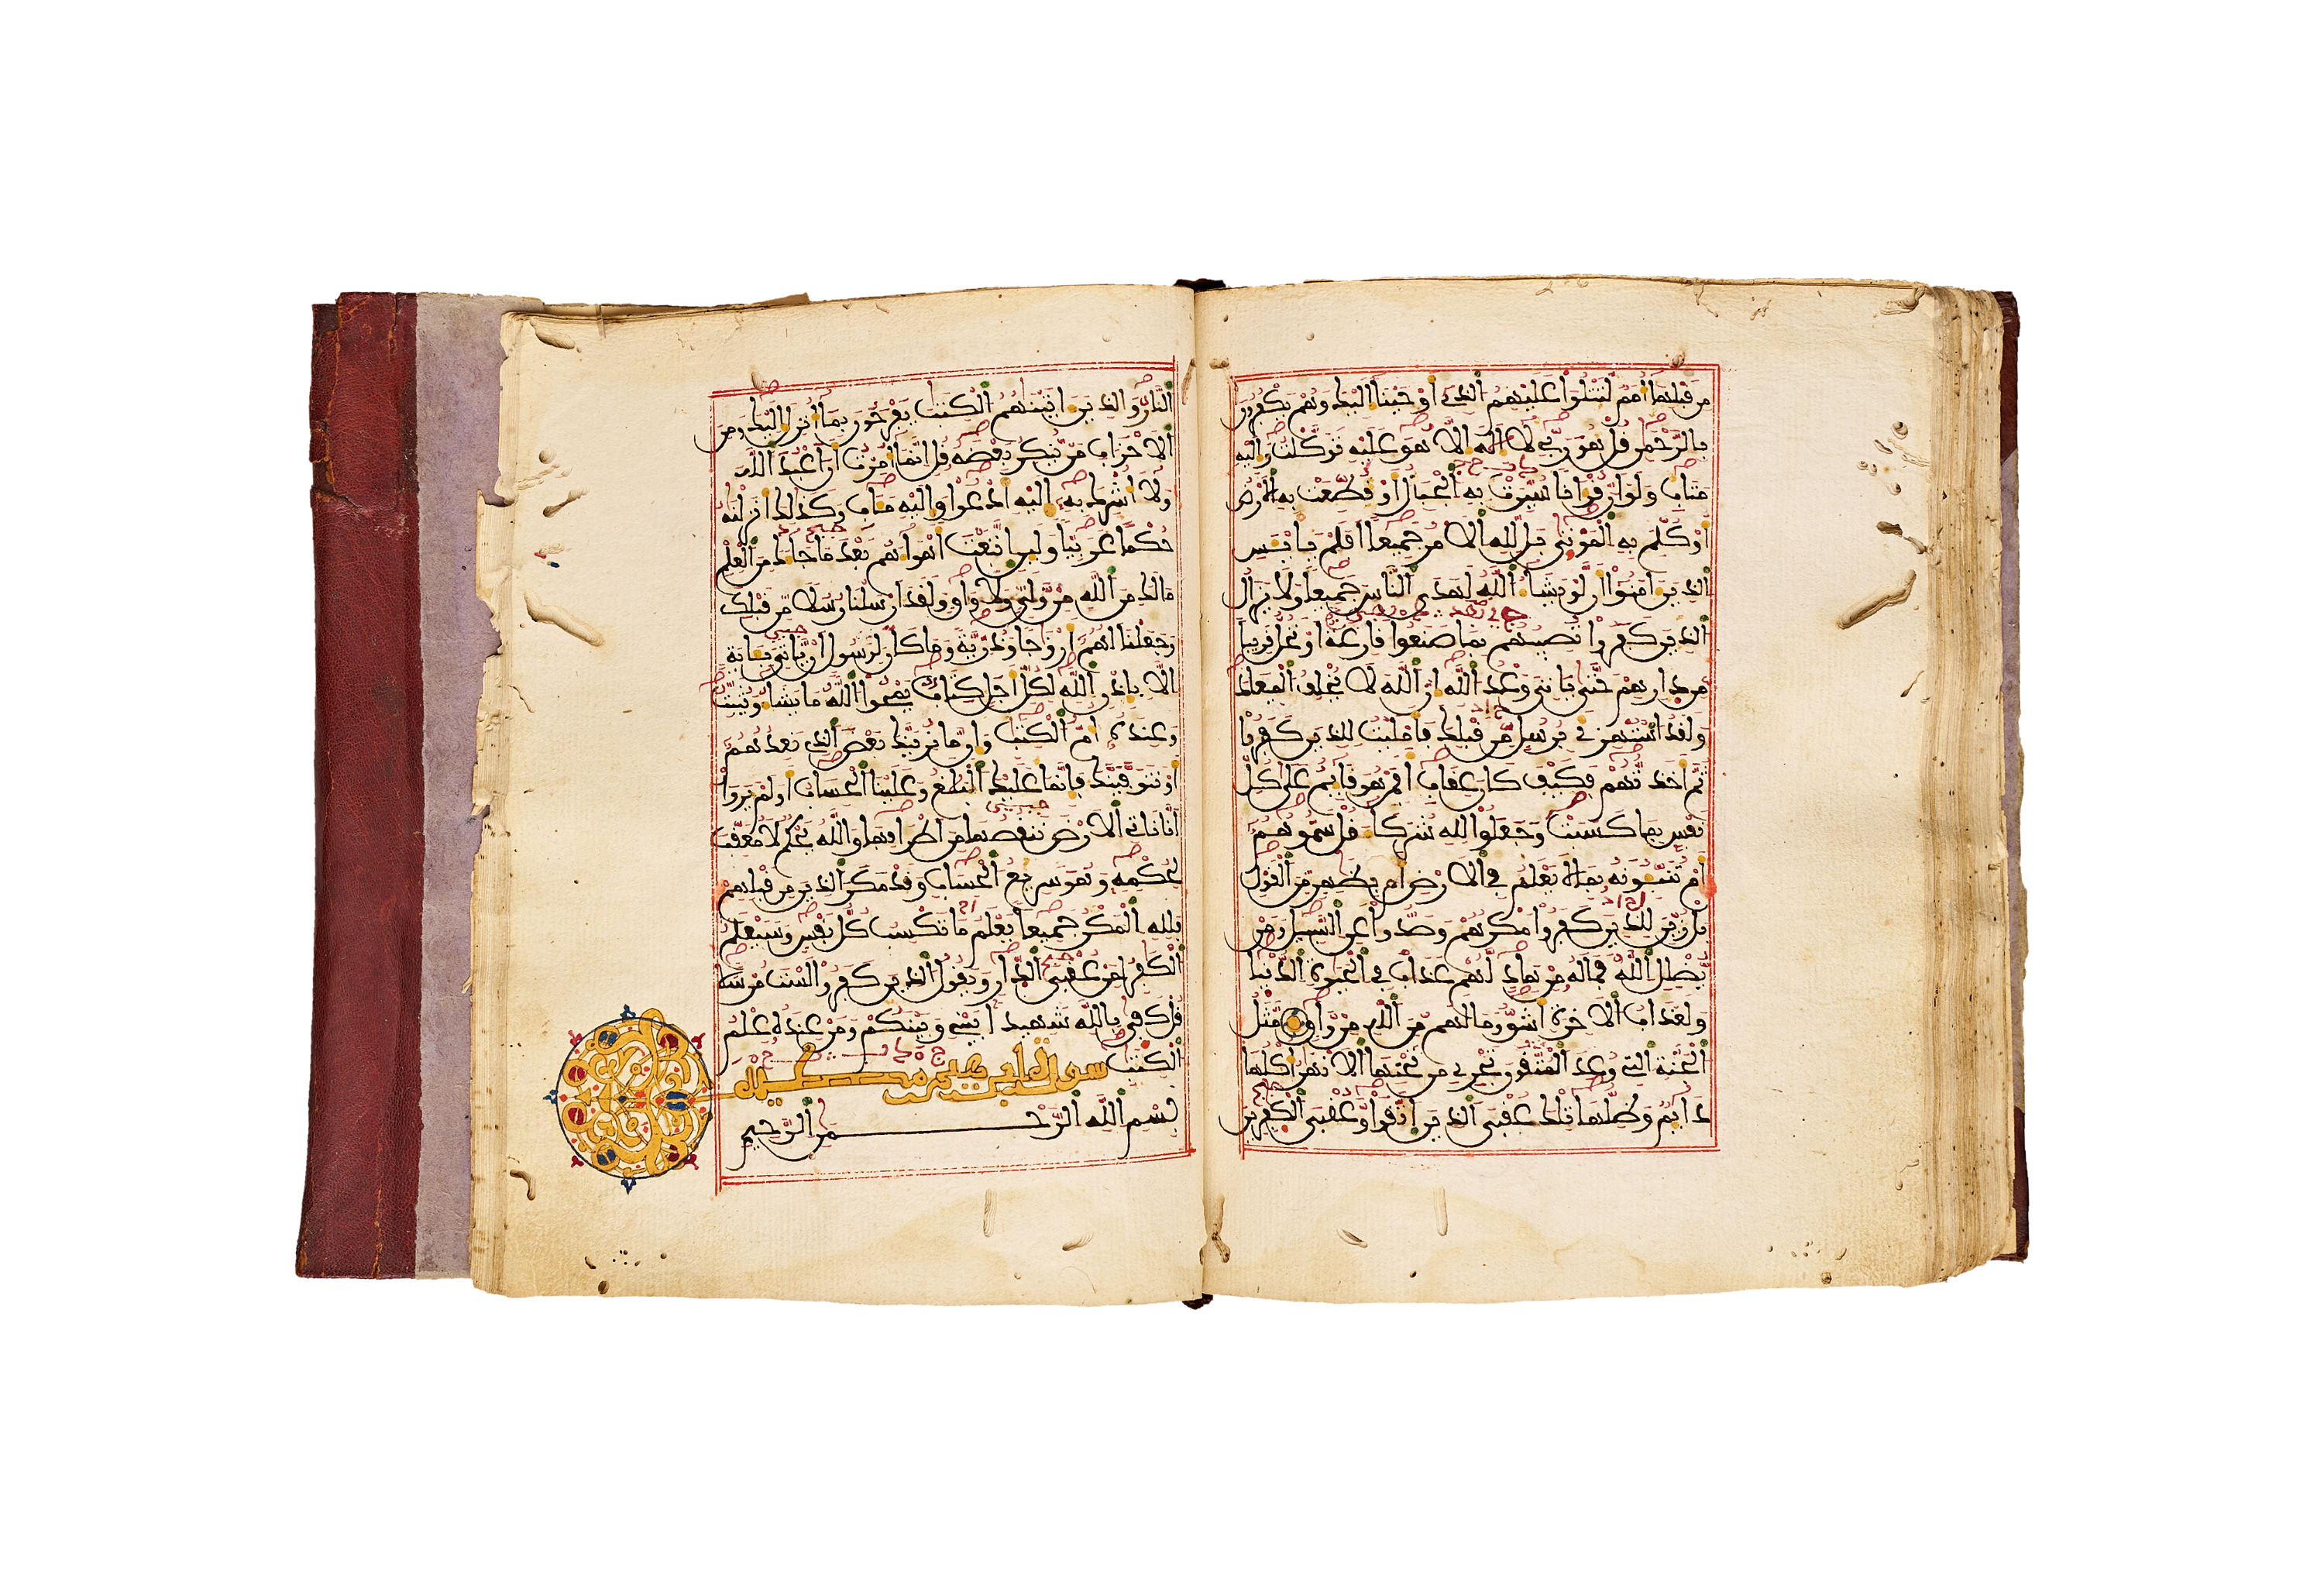 من قبلها أمم لتتلوا عليهم الذي أوحينا إليك وهم يكفرون
بالرحمن قل هو ربي لا إله إلا هو عليه توكلت وإليه
متاب ولو أن قرانا سيرت به الجبال أو قطعت به الارض
أو كلم به الموتى بل لله الامر جميعا أفلم يايئس
الذين ءامنوا أن لو يشاء الله لهدى الناس جميعا ولا يزال
الذين كفروا تصيبهم بما صنعوا قارعة أو تحل قريبا
من دارهم حتى ياتي وعد الله إن الله لا يخلف الميعاد
ولقد استهزئ برسل من قبلك فأمليت للذين كفروا
ثم أخذتهم فكيف كان عقاب أفمن هو قائم على كل
نفس بما كسبت وجعلوا لله شركاء قل سموهم
أم تنبئونه بما لا يعلم في الارض أم بظهر من القول
بل زين للذين كفروا مكرهم وصدوا عن السبيل ومن
يضلل الله فما له من هاد لهم عذاب في الحيوة الدنيا
ولعذاب الاخرة أشق وما لهم من الله من واق مثل
الجنة التي وعد المتقون تجري من تحتها الانهر أكلها
دائم وظلها تلك عقبى الذين اتقوا وعقبى الكفرين
النار والذين ءاتينهم الكتب يفرحون بما أنزل إليك ومن
الاحزاب من ينكر بعضه قل إنما أمرت أن أعبد الله
ولا أشرك به إليه أدعوا وإليه مئاب وكذلك أنزلنه
حكما عربيا ولئن اتبعت أهواءهم بعد ما جاءك من العلم
مالك من الله من ولي ولا واق ولقد أرسلنا رسلا من قبلك
وجعلنا لهم أزوجا وذرية وما كان لرسول أن ياتي بئاية
إلا بإذن الله لكل أجل كتاب يمحوا الله ما يشاء ويثبت
وعنده أم الكتب وإن ما نرينك بعض الذي نعدهم
أو نتوفينك فإنما عليك البلغ وعلينا الحساب أولم يروا
أنا ناتي الارض ننقصها من أطرافها والله يحكم لا معقب
لحكمه وهو سريع الحساب وقد مكر الذين من قبلهم
فلله المكر جميعا يعلم ما تكسب كل نفس وسيعلم
الكفر لمن عقبى الدار ويقول الذين كفروا لست مرسلا
قل كفى بالله شهيدا بيني وبينكم ومن عنده علم
الكتب
بسم الله الرحمن الرحيم